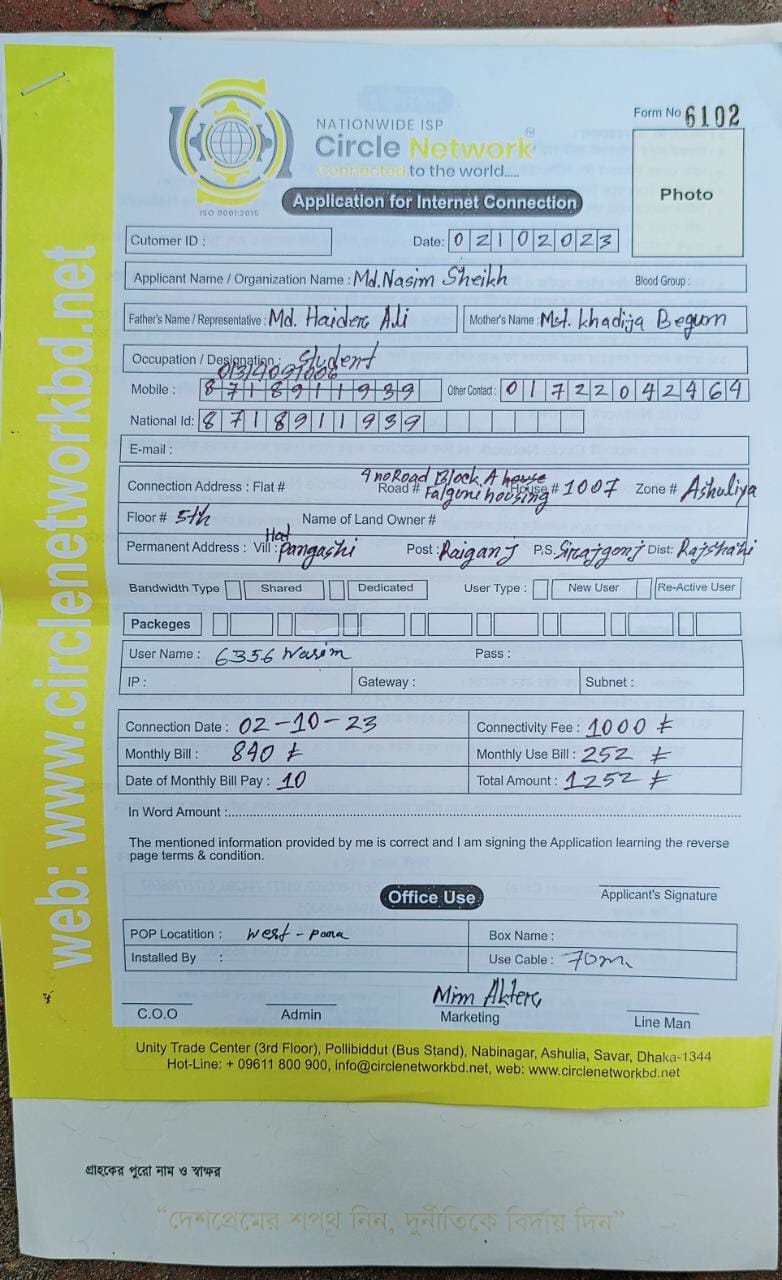 web: www.circlenetworkbd.net
NATIONWIDE ISP
Circle Network
Connected to the world.....
ISO 9001:2015
Form No 6102
Photo
Application for Internet Connection
Cutomer ID :
Date: 02102023
Applicant Name / Organization Name : Md. Nasim Sheikh
Blood Group :
Father's Name / Representative : Md. Haider Ali
Mother's Name : Mst. Khadija Begum
Occupation / Designation : Student
Mobile : 8718911939
Other Contact : 01722042464
National Id: 8718911939
E-mail :
4 no Road Block A house
Connection Address : Flat # Road # Falguni housing House # 1007 Zone # Ashuliya
Floor # 5th Name of Land Owner #
Permanent Address : Vill : Hat pangashi Post : Raiganj P.S. Sirajgonj Dist: Rajshahi
Bandwidth Type Shared Dedicated User Type : New User Re-Active User
Packeges
User Name : 6356 Wasim Pass :
IP : Gateway : Subnet :
Connection Date : 02-10-23 Connectivity Fee : 1000 ৳
Monthly Bill : 840 ৳ Monthly Use Bill : 252 ৳
Date of Monthly Bill Pay : 10 Total Amount : 1252 ৳
In Word Amount :
The mentioned information provided by me is correct and I am signing the Application learning the reverse
page terms & condition.
Office Use
Applicant's Signature
POP Locatition : West-para Box Name :
Installed By : Use Cable : 70m
Mim Akter
C.O.O Admin Marketing Line Man
Unity Trade Center (3rd Floor), Pollibiddut (Bus Stand), Nabinagar, Ashulia, Savar, Dhaka-1344
Hot-Line: + 09611 800 900, info@circlenetworkbd.net, web: www.circlenetworkbd.net
গ্রাহকের পুরো নাম ও স্বাক্ষর
“দেশপ্রেমের শপথ নিন, দুর্নীতিকে বিদায় দিন”